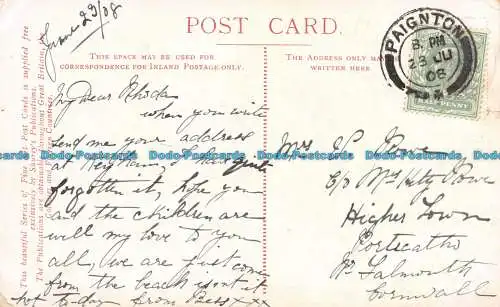 June 29/08
POST CARD.
THIS SPACE MAY BE USED FOR
CORRESPONDENCE FOR INLAND POSTAGE ONLY.
THE ADDRESS ONLY MAY
WRITTEN HERE.
PAIGNTON
8. PM
23 JU
08
HALFPENNY
This beautiful Series of Fine Art Post Cards is supplied free
exclusively by Shurey's Publications;
The Publications are obtainable throughout Great Britain, the
Colonies and Foreign Countries.
My Dear Rhoda
when you write
send me your address
at I have quite
forgotten it, hope you
and the children are
well my love to you
all, we are just come
from the beach isn't it
hot to-day from Bess xxx
Mrs
c/o Mrs Kity Rowe
Higher Town
Portscatho
Nr Falmouth
Cornwall
Bdo-Postcards Bdo-Postcards Bdo-Postcards Bdo-Postcards